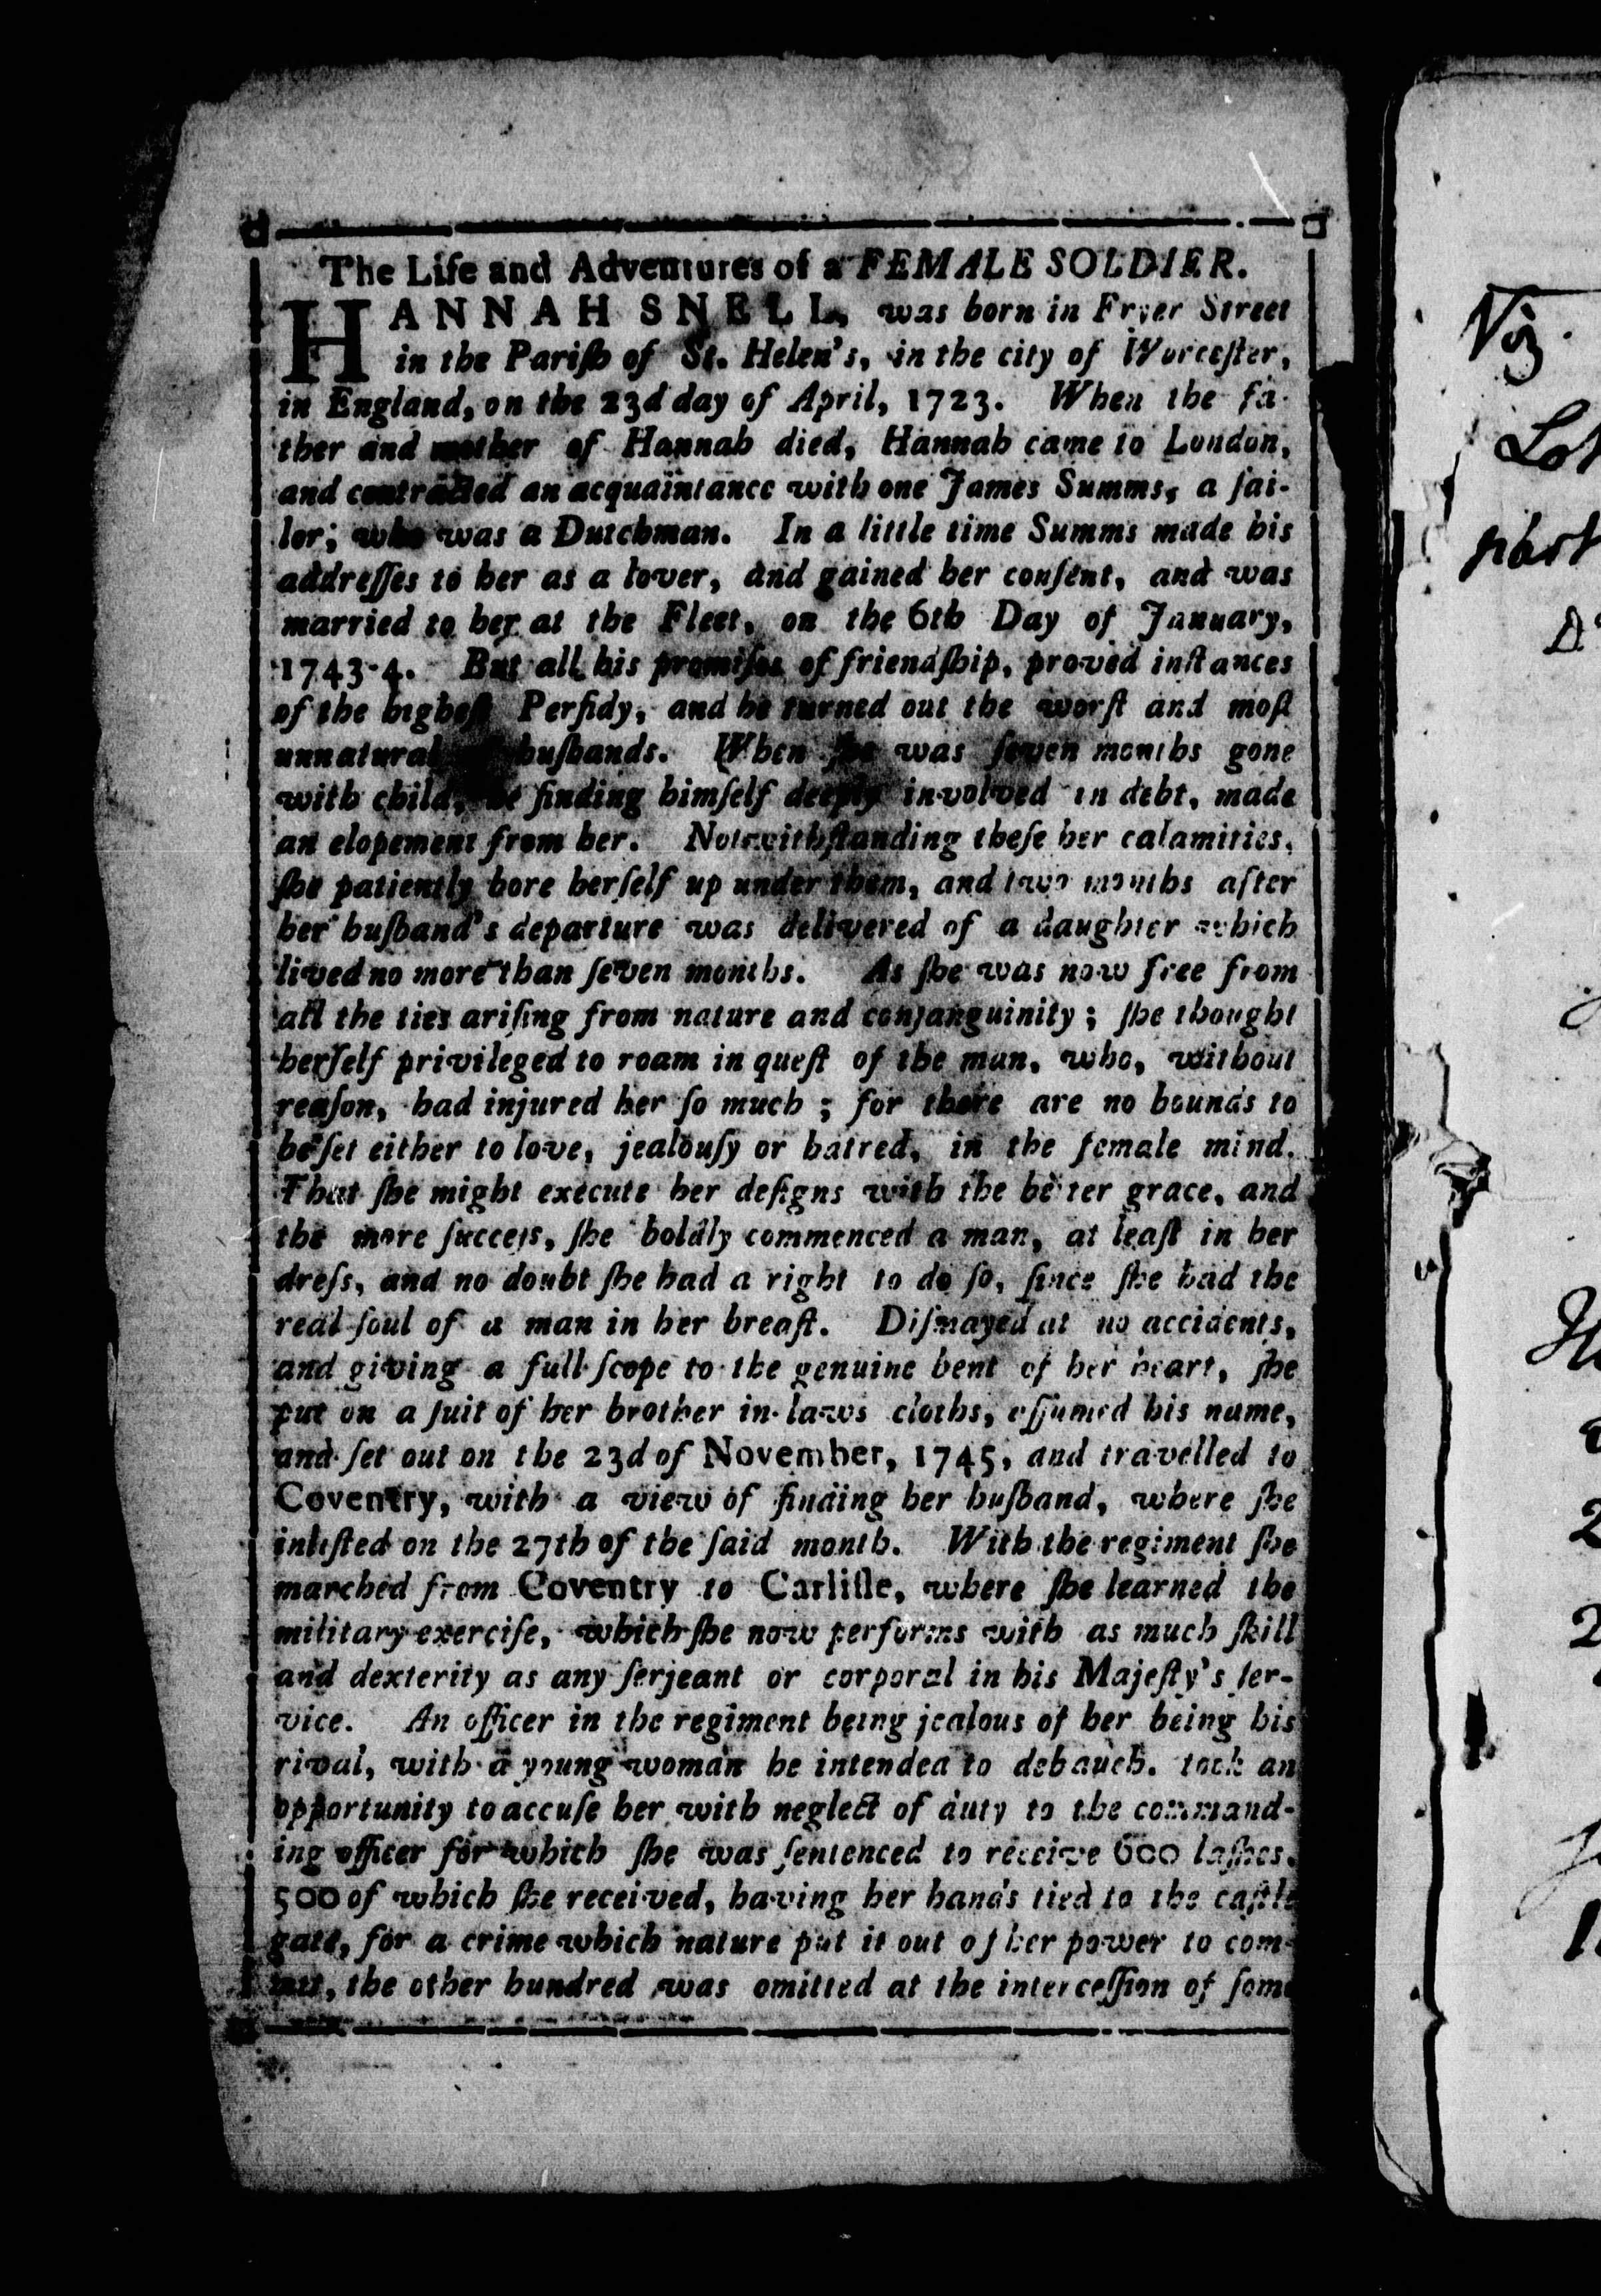 The Life and Adventures of a FEMALE SOLDIER.
HANNAH SNELL, was born in Fryer Street
in the Pariſh of St. Helen's, in the city of Worceſter,
in England, on the 23d day of April, 1723. When the fa-
ther and mother of Hannah died, Hannah came to London,
and contracted an acquaintance with one James Summs, a ſai-
lor; who was a Dutchman. In a little time Summs made his
addreſſes to her as a lover, and gained her conſent, and was
married to her at the Fleet, on the 6th Day of January,
1743-4. But all his promiſes of friendſhip, proved inſtances
of the higheſt Perfidy, and he turned out the worſt and moſt
unnatural huſbands. When ſhe was ſeven months gone
with child, he finding himſelf deeply involved in debt, made
an elopement from her. Notwithſtanding theſe her calamities,
ſhe patiently bore herſelf up under them, and two months after
her huſband's departure was delivered of a daughter which
lived no more than ſeven months. As ſhe was now free from
all the ties ariſing from nature and conſanguinity; ſhe thought
herſelf privileged to roam in queſt of the man, who, without
reaſon, had injured her ſo much; for there are no bounds to
be ſet either to love, jealouſy or hatred, in the female mind.
That ſhe might execute her deſigns with the better grace, and
the more ſucceſs, ſhe boldly commenced a man, at leaſt in her
dreſs, and no doubt ſhe had a right to do ſo, ſince ſhe had the
real ſoul of a man in her breaſt. Diſmayed at no accidents,
and giving a full ſcope to the genuine bent of her heart, ſhe
put on a ſuit of her brother in-laws cloths, aſſumed his name,
and ſet out on the 23d of November, 1745, and travelled to
Coventry, with a view of finding her huſband, where ſhe
inliſted on the 27th of the ſaid month. With the regiment ſhe
marched from Coventry to Carliſle, where ſhe learned the
military exerciſe, which ſhe now performs with as much ſkill
and dexterity as any ſerjeant or corporal in his Majeſty's ſer-
vice. An officer in the regiment being jealous of her being his
rival, with a young woman he intended to debauch. took an
opportunity to accuſe her with neglect of duty to the command-
ing officer for which ſhe was ſentenced to receive 600 laſhes,
500 of which ſhe received, having her hands tied to the caſtle
gate, for a crime which nature put it out of her power to com-
mit, the other hundred was omitted at the interceſſion of ſome
Viz.